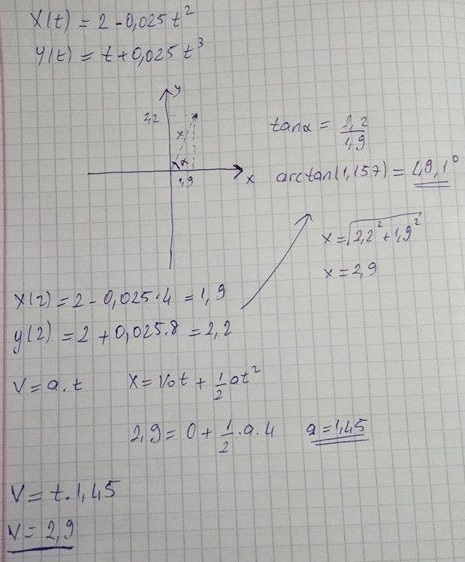 x(t) = 2 - 0,025 t²
y(t) = t + 0,025 t³
y
2,2
x
α
1,9
x
tanα = 2,2/1,9
arctan(1,157) = 49,1°
x = √2,2² + 1,9²
x = 2,9
x(2) = 2 - 0,025 · 4 = 1,9
y(2) = 2 + 0,025 · 8 = 2,2
v = a · t
x = v₀t + 1/2 at²
2,9 = 0 + 1/2 · a · 4
a = 1,45
v = t · 1,45
v = 2,9